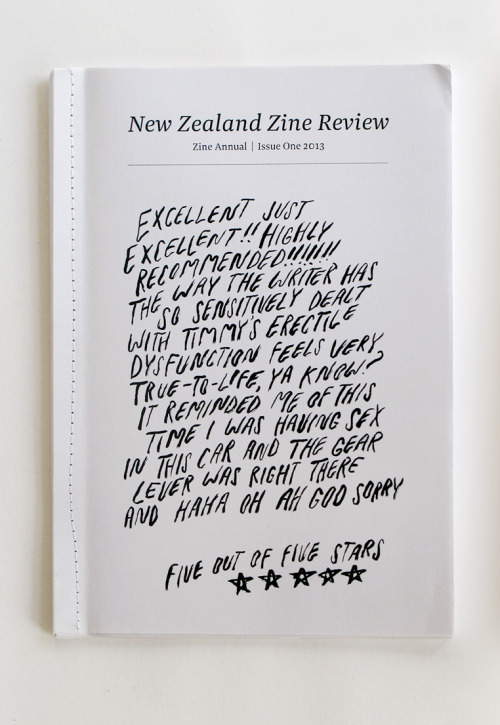 New Zealand Zine Review
Zine Annual | Issue One 2013
EXCELLENT JUST
EXCELLENT!! HIGHLY
RECOMMENDED!!!!!!!
THE WAY THE WRITER HAS
SO SENSITIVELY DEALT
WITH TIMMY'S ERECTILE
DYSFUNCTION FEELS VERY
TRUE-TO-LIFE, YA KNOW?
IT REMINDED ME OF THIS
TIME I WAS HAVING SEX
IN THIS CAR AND THE GEAR
LEVER WAS RIGHT THERE
AND HAHA OH AH GOD SORRY
FIVE OUT OF FIVE STARS